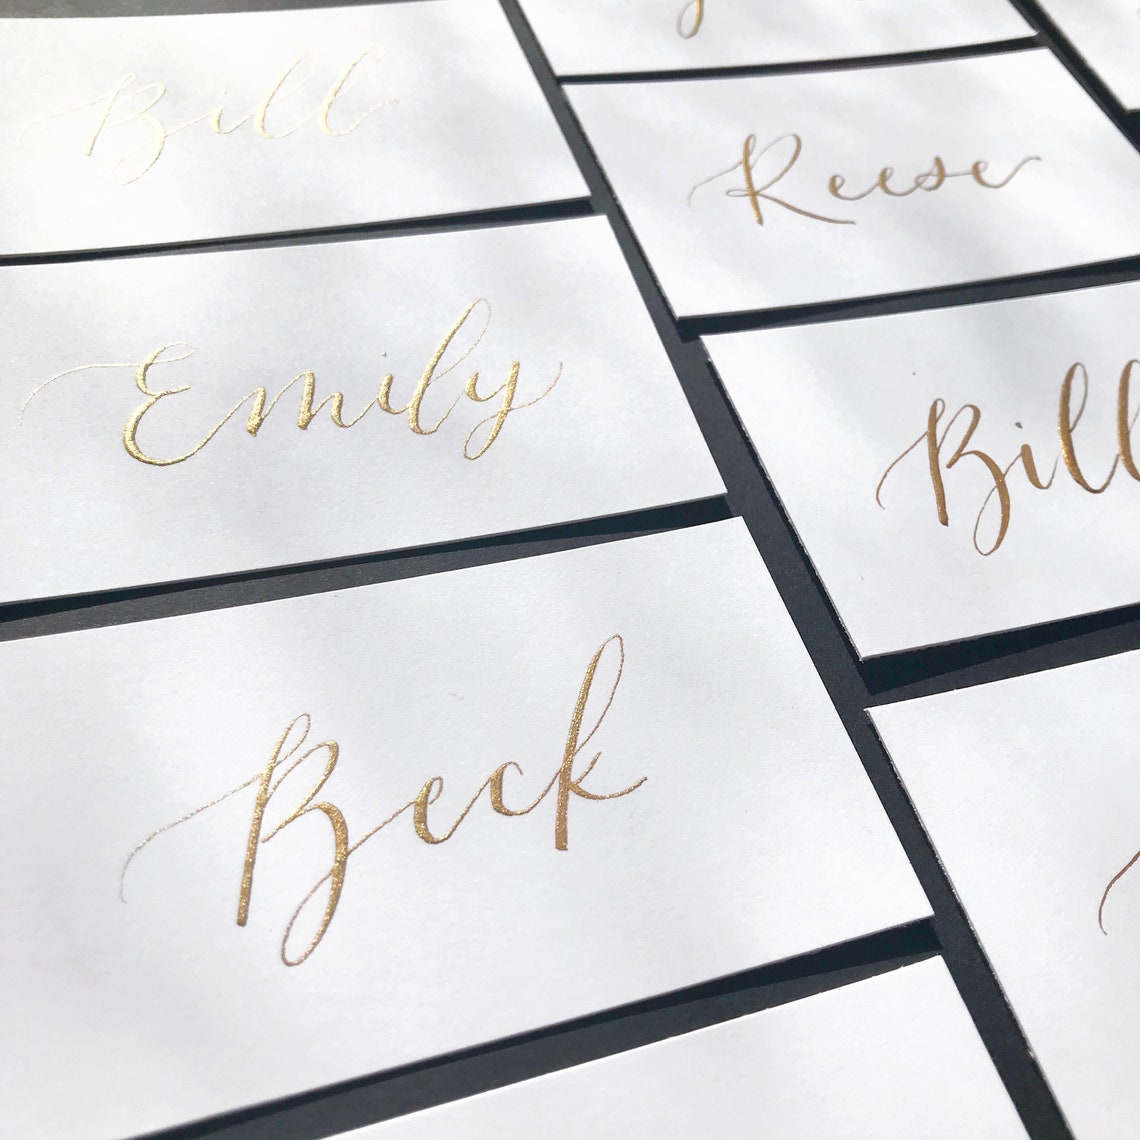 Bill
Reese
Emily
Bill
Beck